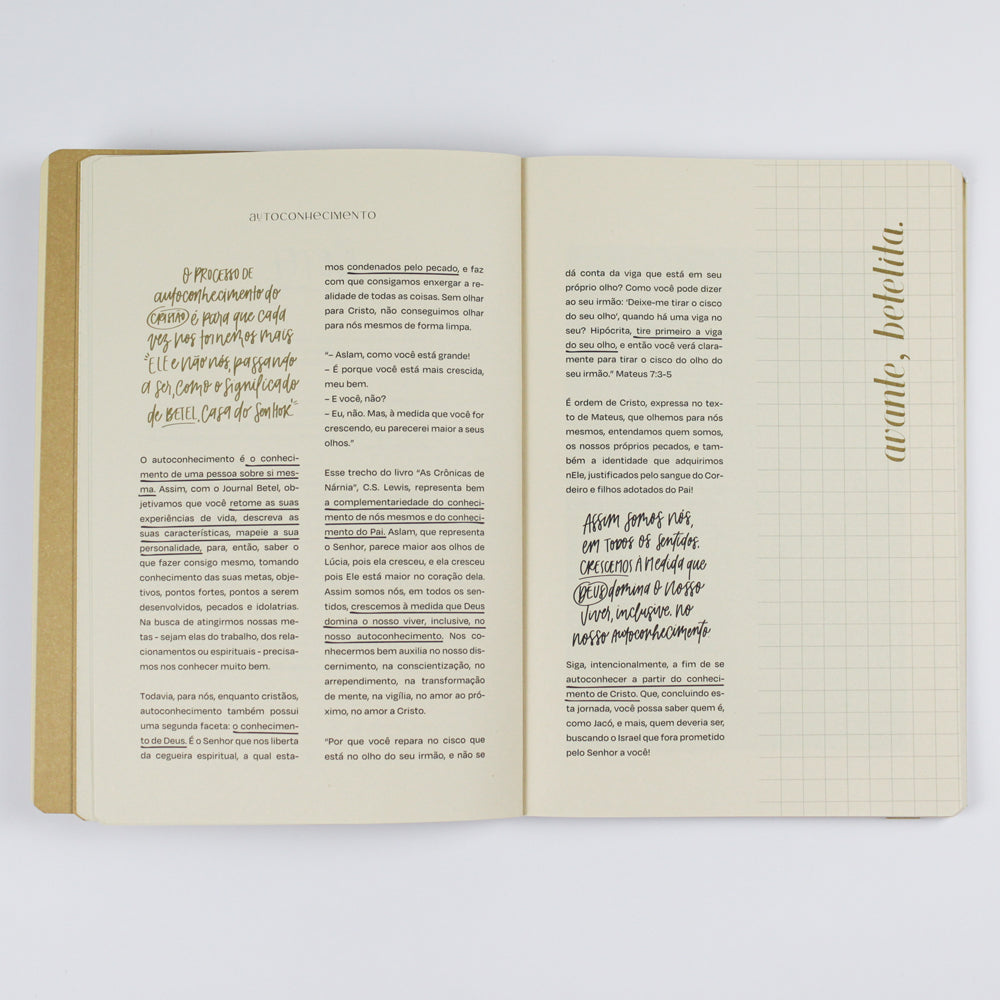 AUTOCONHECIMENTO
O PROCESSO DE
autoconhecimento do
CRISTÃO é para que cada
vez nos tornemos mais
"ELE e não nós, passando
a ser, como o significado
de BETEL, Casa do Senhor."
O autoconhecimento é o conheci-
mento de uma pessoa sobre si mes-
ma. Assim, com o Journal Betel, ob-
jetivamos que você retome as suas
experiências de vida, descreva as
suas características, mapeie a sua
personalidade, para, então, saber o
que fazer consigo mesmo, tomando
conhecimento das suas metas, obje-
tivos, pontos fortes, pontos a serem
desenvolvidos, pecados e idolatrias.
Na busca de atingirmos nossas me-
tas - sejam elas do trabalho, dos rela-
cionamentos ou espirituais - precisa-
mos nos conhecer muito bem.
Todavia, para nós, enquanto cristãos,
autoconhecimento também possui
uma segunda faceta: o conhecimen-
to de Deus. É o Senhor que nos liberta
da cegueira espiritual, a qual esta-
mos condenados pelo pecado, e faz
com que consigamos enxergar a re-
alidade de todas as coisas. Sem olhar
para Cristo, não conseguimos olhar
para nós mesmos de forma limpa.
"– Aslam, como você está grande!
– É porque você está mais crescida,
meu bem.
– E você, não?
– Eu, não. Mas, à medida que você for
crescendo, eu parecerei maior a seus
olhos."
Esse trecho do livro "As Crônicas de
Nárnia", C.S. Lewis, representa bem
a complementariedade do conheci-
mento de nós mesmos e do conheci-
mento do Pai. Aslam, que representa
o Senhor, parece maior aos olhos de
Lúcia, pois ela cresceu, e ela cresceu
pois Ele está maior no coração dela.
Assim somos nós, em todos os sen-
tidos, crescemos à medida que Deus
domina o nosso viver, inclusive, no
nosso autoconhecimento. Nos co-
nhecermos bem auxilia no nosso dis-
cernimento, na conscientização, no
arrependimento, na transformação
de mente, na vigília, no amor ao pró-
ximo, no amor a Cristo.
"Por que você repara no cisco que
está no olho do seu irmão, e não se
dá conta da viga que está em seu
próprio olho? Como você pode dizer
ao seu irmão: 'Deixe-me tirar o cisco
do seu olho', quando há uma viga no
seu? Hipócrita, tire primeiro a viga
do seu olho, e então você verá clara-
mente para tirar o cisco do olho do
seu irmão." Mateus 7:3-5
É ordem de Cristo, expressa no tex-
to de Mateus, que olhemos para nós
mesmos, entendamos quem somos,
os nossos próprios pecados, e tam-
bém a identidade que adquirimos
nEle, justificados pelo sangue do Cor-
deiro e filhos adotados do Pai!
Assim somos nós,
em todos os sentidos.
CRESCEMOS À medida que
DEUS domina o nosso
viver, inclusive, no
nosso autoconhecimento
Siga, intencionalmente, a fim de se
autoconhecer a partir do conheci-
mento de Cristo. Que, concluindo es-
ta jornada, você possa saber quem é,
como Jacó, e mais, quem deveria ser,
buscando o Israel que fora prometido
pelo Senhor a você!
avante, betelita.